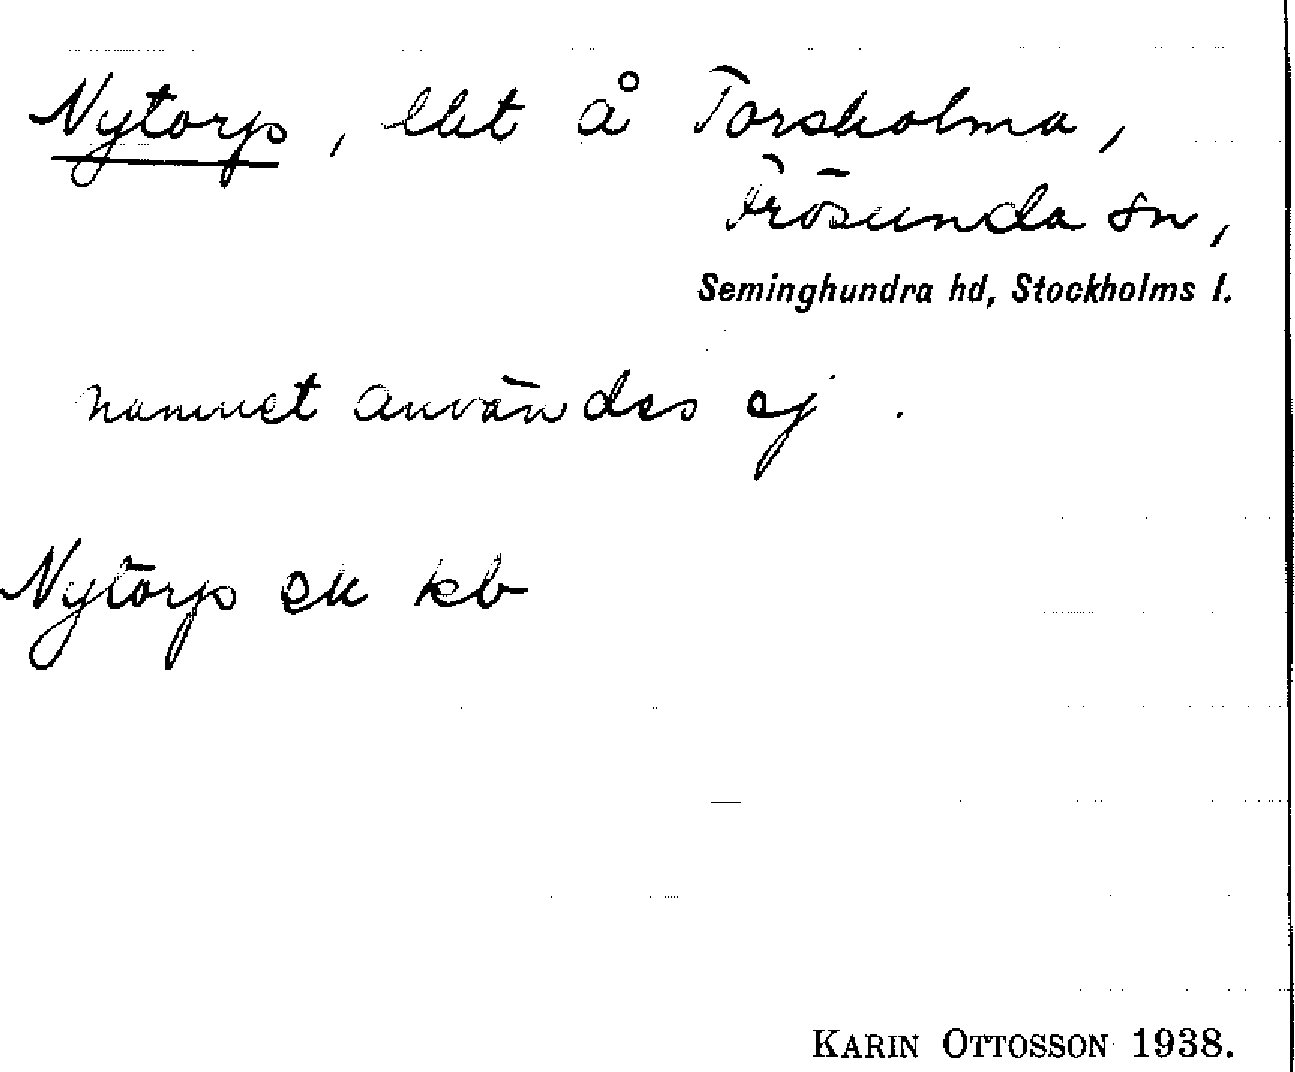 Nytorp, lht å Torsholma,
Frösunda sn,
Seminghundra hd, Stockholms l.
namnet användes ej.
Nytorp ek kb
KARIN OTTOSSON 1938.